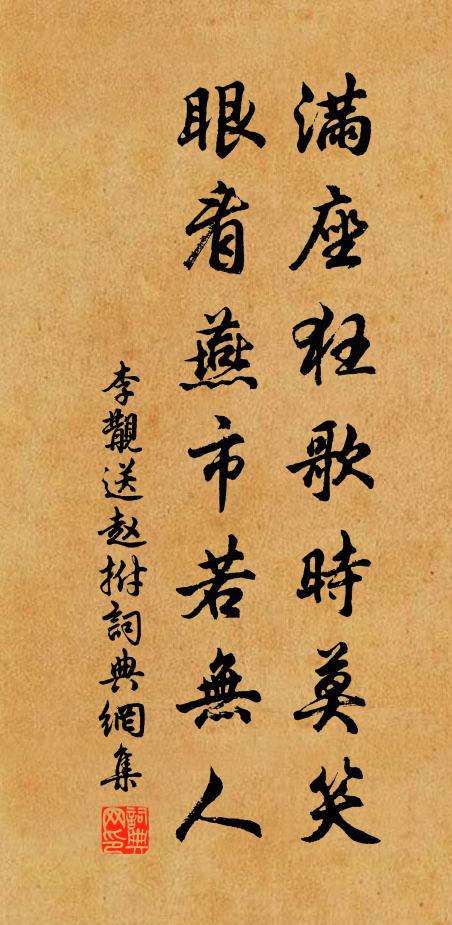 滿座狂歌時莫笑
眼看燕市若無人
李覯送赵拊詞典網集
詞典网印